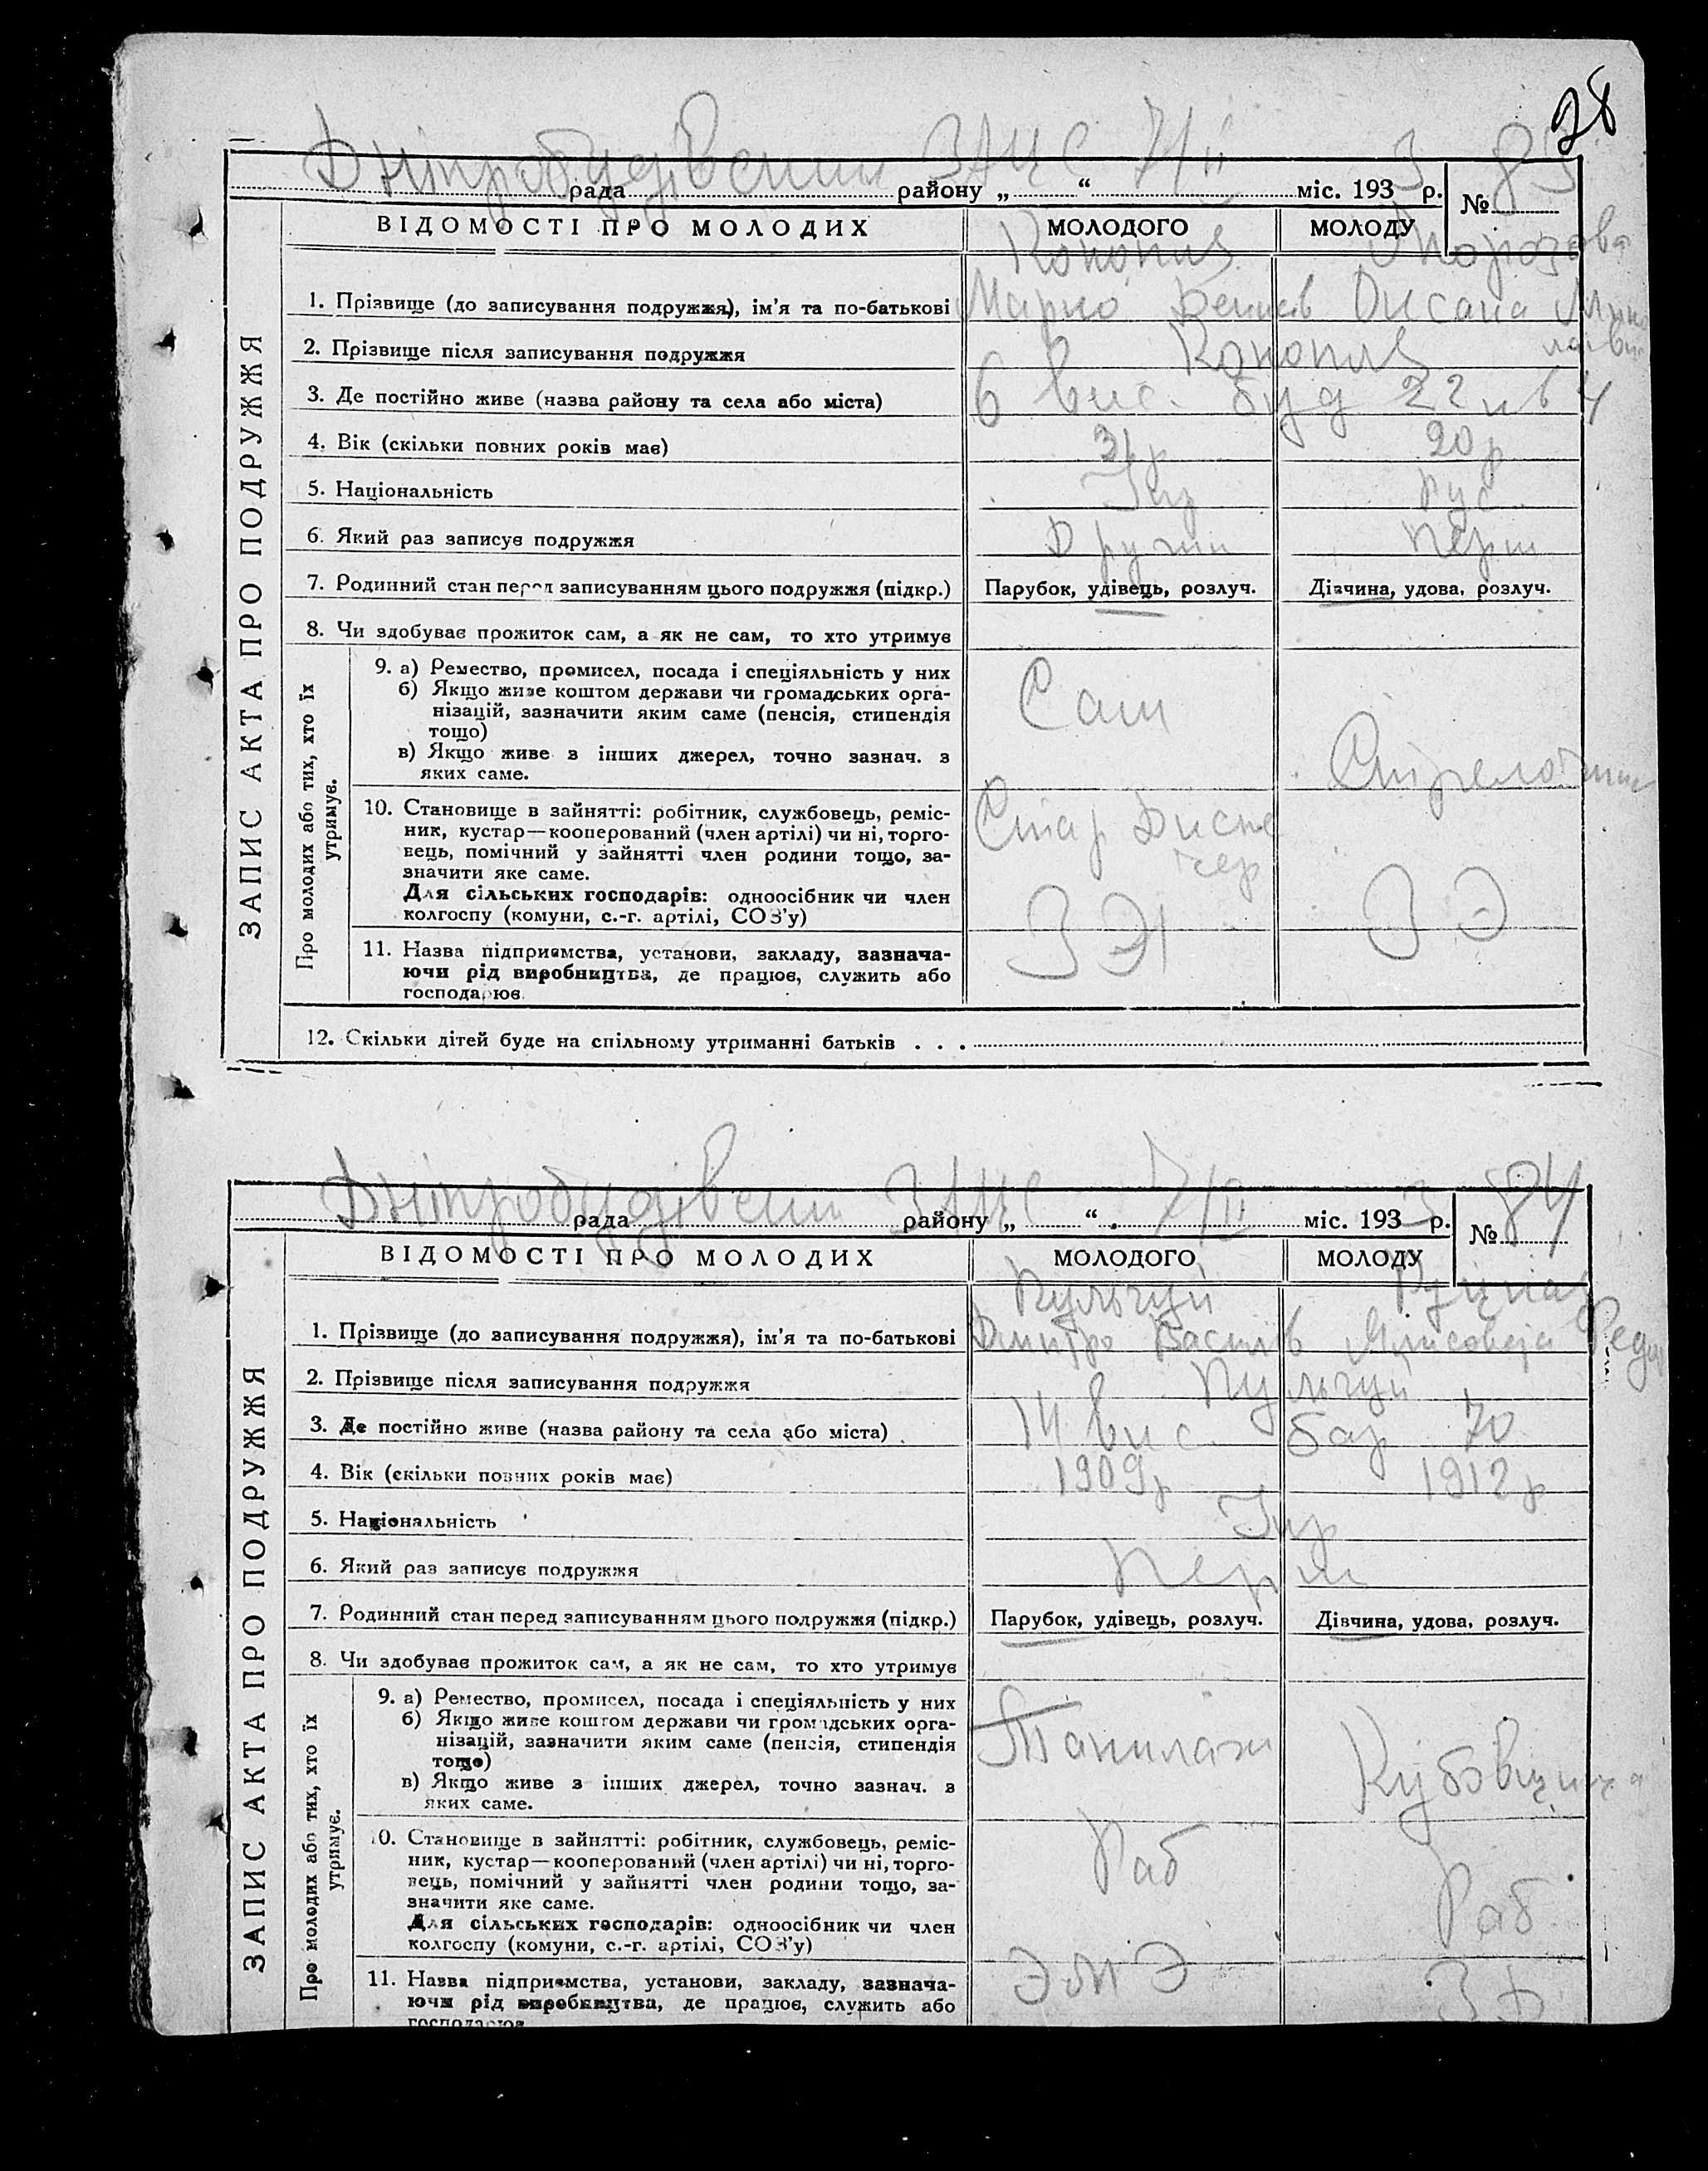 28
Дніпробудівськ ЗАЦС 7/II 3 83
рада району „ “ міс. 193 р. №
ВІДОМОСТІ ПРО МОЛОДИХ МОЛОДОГО МОЛОДУ
Конопля Морозова
1. Прізвище (до записування подружжя), ім’я та по-батькові Марко Денисів Оксана
2. Прізвище після записування подружжя Конопля
3. Де постійно живе (назва району та села або міста) 6 вис. буд 22 кв 4
4. Вік (скільки повних років має) 31р 20р
5. Національність Укр Рус
6. Який раз записує подружжя Други Перш
7. Родинний стан перед записуванням цього подружжя (підкр.) Парубок, удівець, розлуч. Дівчина, удова, розлуч.
8. Чи здобуває прожиток сам, а як не сам, то хто утримує
ЗАПИС АКТА ПРО ПОДРУЖЖЯ
Про молодих або тих, хто їх утримує.
9. а) Ремество, промисел, посада і спеціяльність у них
б) Якщо живе коштом держави чи громадських орга-
нізацій, зазначити яким саме (пенсія, стипендія
тощо)
в) Якщо живе з інших джерел, точно зазнач. з
яких саме.
Сам
10. Становище в зайнятті: робітник, службовець, реміс-
ник, кустар—кооперований (член артілі) чи ні, торго-
вець, помічний у зайнятті член родини тощо, за-
значити яке саме.
Для сільських господарів: одноосібник чи член
колгоспу (комуни, с.-г. артілі, СОЗ’у)
Стар Диспе
чер
11. Назва підприємства, установи, закладу, зазнача-
ючи рід виробництва, де працює, служить або
господарює
ЗЭ
12. Скільки дітей буде на спільному утриманні батьків . . .
Дніпробудівськ ЗАЦС 7/II 3 84
рада району „ “ міс. 193 р. №
ВІДОМОСТІ ПРО МОЛОДИХ МОЛОДОГО МОЛОДУ
Пульгуй
1. Прізвище (до записування подружжя), ім’я та по-батькові Дмитро Василів
2. Прізвище після записування подружжя Пульгуй
3. Де постійно живе (назва району та села або міста) 14 вис. бар 70
4. Вік (скільки повних років має) 1909р 1912р
5. Національність Укр
6. Який раз записує подружжя Перш
7. Родинний стан перед записуванням цього подружжя (підкр.) Парубок, удівець, розлуч. Дівчина, удова, розлуч.
8. Чи здобуває прожиток сам, а як не сам, то хто утримує
ЗАПИС АКТА ПРО ПОДРУЖЖЯ
Про молодих або тих, хто їх утримує.
9. а) Ремество, промисел, посада і спеціяльність у них
б) Якщо живе коштом держави чи громадських орга-
нізацій, зазначити яким саме (пенсія, стипендія
тощо)
в) Якщо живе з інших джерел, точно зазнач. з
яких саме.
Такилаж Кубовщица
10. Становище в зайнятті: робітник, службовець, реміс-
ник, кустар—кооперований (член артілі) чи ні, торго-
вець, помічний у зайнятті член родини тощо, за-
значити яке саме.
Для сільських господарів: одноосібник чи член
колгоспу (комуни, с.-г. артілі, СОЗ’у)
Раб Раб
11. Назва підприємства, установи, закладу, зазнача-
ючи рід виробництва, де працює, служить або
господарює
ЭМЭ